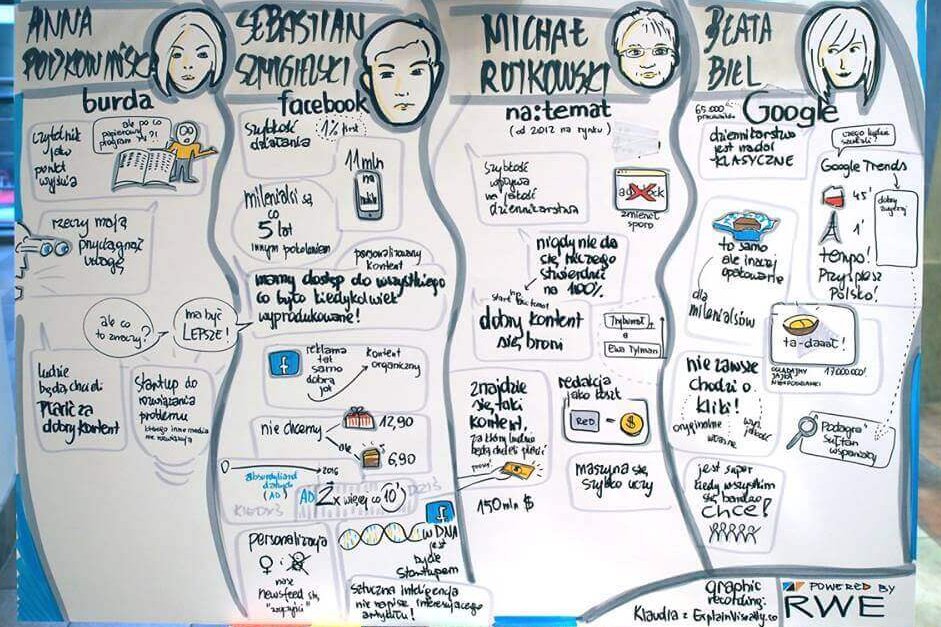 ANNA
burda
czytelnik
jako
punkt
wyjścia
ale po co
papierowy
program TV?!
rzeczy mają
przyciągnąć
uwagę
ale co
to znaczy?
ma być
LEPSZE!
ludzie
będą chcieli
płacić za
dobry kontent
startup do
rozwiązania
problemu
którego inne media
nie rozwiązują
SEBASTIAN
SZMIGIELSKI
facebook
szybkość
działania
1% first
11 mln
na
mobile
milenialsi są
co
5 lat
innym pokoleniem
personalizowany
kontent
mamy dostęp do wszystkiego
co było kiedykolwiek
wyprodukowane!
reklama
tak
samo
dobra
jak
kontent
organiczny
nie chcemy
12,90
ale
6,90
0
2016
absurdyliard
danych
(AD)
AD
2x więcej co 10'
KIEDYŚ
DZIŚ
personalizacja
nasz
newsfeed się
w DNA
jest
bycie
startupem
sztuczna inteligencja
nie napisze interesującego
artykułu!
MICHAŁ
RUTKOWSKI
na:temat
(od 2012 na rynku)
szybkość
wpływa
na jakość
dziennikarstwa
adblock
zmienił
sporo
nigdy nie da
się niczego
stwierdzić
na 100%
dobry kontent
się broni
Trybunał
a
Ewa Tylman
znajdzie
się taki
kontent,
za który ludzie
będą chcieli płacić
150 mln $
redakcja
jako koszt
RED. = $
maszyna się
szybko uczy
BEATA
BIEL
Google
65.000
pracowników
dziennikarstwo
jest nadal
KLASYCZNE
czego ludzie
szukali?
Google Trends
45'
1'
tempo!
Przyspiesz
Polsko!
to samo
ale inaczej
opakowane
dla
milenialsów
ta-daaa!
OGLĄDAŁBY
JAJKA
NIESPODZIANKI
17000000!
nie zawsze
chodzi o
kliki!
oryginalne
własne
wys.
jakość
Podagra
Sułtan
wspaniały
jest super
kiedy wszystkim
się bardzo
chce!
graphic
recording:
Klaudia z ExplainVisually.co
POWERED BY
RWE